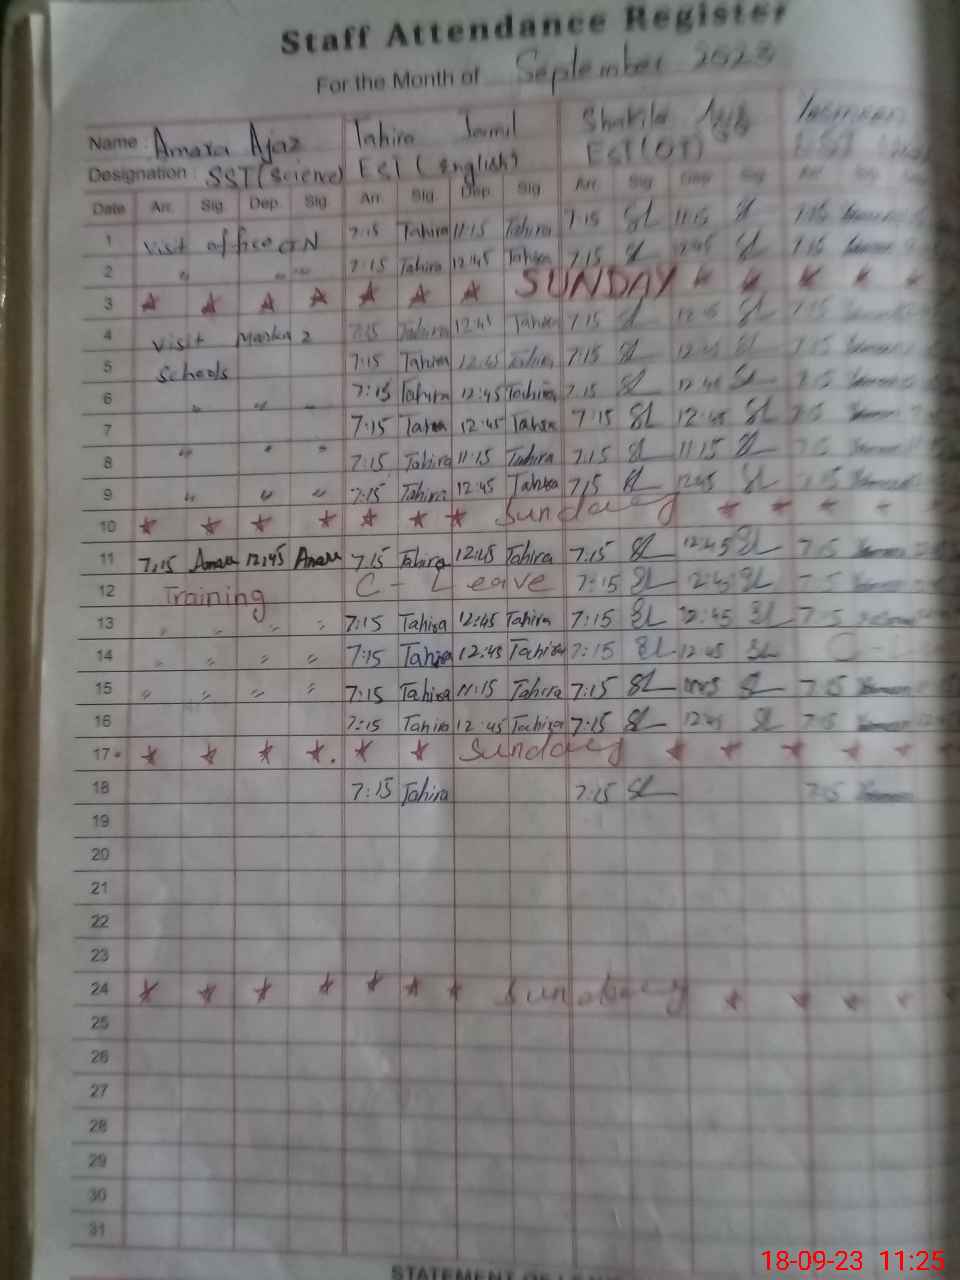 Staff Attendance Register
For the Month of September 2023
Name : Amara Ajaz Tahira Jamil Shakila
Designation : SST (Science) EST (English) EST (OT) EST
Date Arr. Sig. Dep. Sig. Arr. Sig. Dep. Sig Arr. Sig Dep Sig Arr.
1 Visit office GN 7:15 Tahira 11:15 Tahira 7:15 SL 11:15 SL 7:15
2 " " " 7:15 Tahira 12:45 Tahira 7:15 SL 12:45 SL 7:15
3 ★ ★ ★ ★ ★ ★ ★ SUNDAY ★ ★ ★ ★ ★
4 Visit Markaz 7:15 Tahira 12:45 Tahira 7:15 SL 12:45 SL 7:15
5 Schools 7:15 Tahira 12:45 Tahira 7:15 SL 12:45 SL 7:15
6 " " " 7:15 Tahira 12:45 Tahira 7:15 SL 12:45 SL 7:15
7 7:15 Tahira 12:45 Tahira 7:15 SL 12:45 SL 7:15
8 " " " 7:15 Tahira 11:15 Tahira 7:15 SL 11:15 SL 7:15
9 " " " 7:15 Tahira 12:45 Tahira 7:15 SL 12:45 SL 7:15
10 ★ ★ ★ ★ ★ ★ ★ Sunday ★ ★ ★ ★
11 7:15 Amara 12:45 Amara 7:15 Tahira 12:45 Tahira 7:15 SL 12:45 SL 7:15
12 Training C - Leave 7:15 SL 12:45 SL 7:15
13 " " " " 7:15 Tahira 12:45 Tahira 7:15 SL 12:45 SL 7:15
14 " " " " 7:15 Tahira 12:45 Tahira 7:15 SL 12:45 SL C -
15 " " " " 7:15 Tahira 11:15 Tahira 7:15 SL SL 7:15
16 7:15 Tahira 12:45 Tahira 7:15 SL 12:45 SL 7:15
17 ★ ★ ★ ★ ★ ★ Sunday ★ ★ ★ ★ ★ ★
18 7:15 Tahira 7:15 SL 7:15
19
20
21
22
23
24 ★ ★ ★ ★ ★ ★ ★ Sunday ★ ★ ★ ★
25
26
27
28
29
30
31
STATEMENT OF
18-09-23 11:25